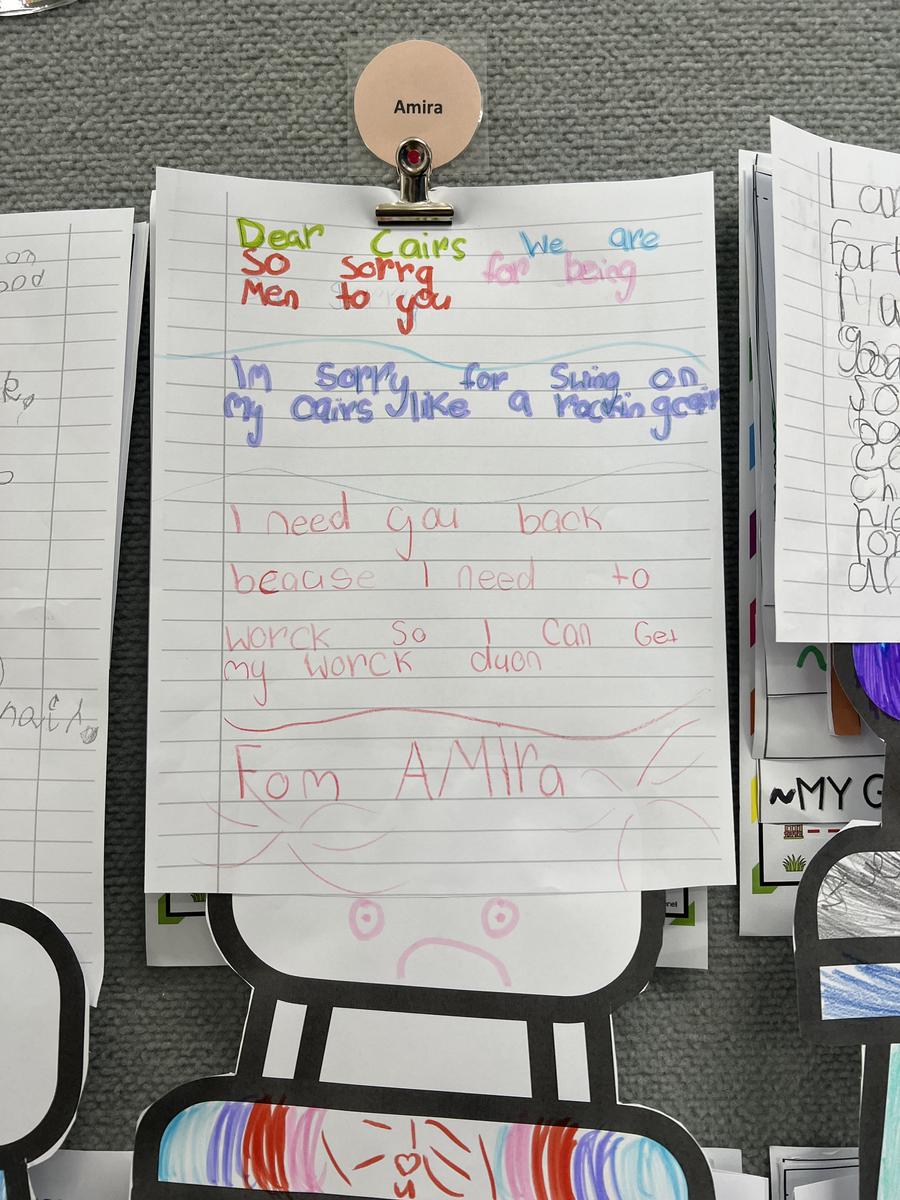 Amira
Dear Cairs We are
So sorrg for being
Men to you
Im Sorry for Swing on
my cairs like a rockin gcair
I need gou back
beacuse I need to
worck So I Can Get
my worck duon
Fom AMIra
on
ood
k,
I an
fart
good
So
ch
~MY G